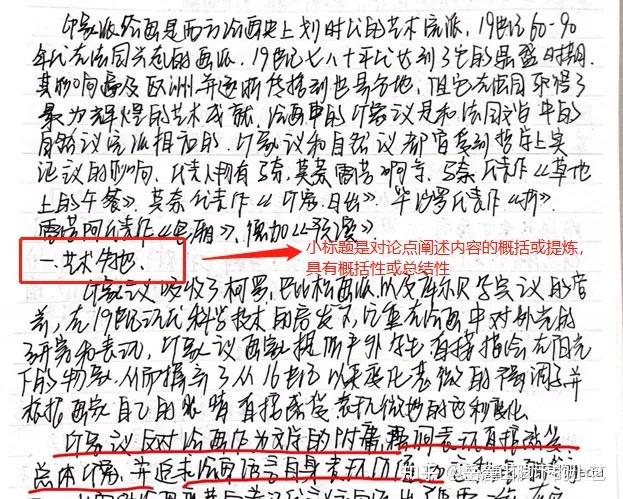 印象派绘画是西方绘画史上划时代的艺术流派，19世纪60-90
年代在法国兴起的画派，19世纪七八十年代达到了它的鼎盛时期，
其影响遍及欧洲，并逐渐传播到世界各地，但它在法国取得了
最为辉煌的艺术成就，绘画中的印象主义是和法国文学中的
自然主义流派相近的，印象主义和自然主义都曾受到哲学上实
证主义的影响，代表人物有马奈、莫奈、雷诺阿等，马奈代表作《草地
上的午餐》，莫奈代表作《印象·日出》，毕沙罗代表作
雷诺阿代表作《包厢》，德加《预演》
一、艺术特色、
小标题是对论点阐述内容的概括或提炼，
具有概括性或总结性
印象主义吸收了柯罗、巴比松画派以及库尔贝写实主义的营
养，在19世纪现代科学技术的启发下，注重在绘画中对外光的
研究和表现，印象主义画家提倡户外写生，直接描绘在阳光
下的物象，从而摒弃了从16世纪以来变化甚微的褐调子并
根据画家自己的眼睛直接感受表现微妙的色彩变化。
印象主义反对绘画作为文学的附庸，强调表现直接感受
总体印象，并追求绘画语言自身表现价值